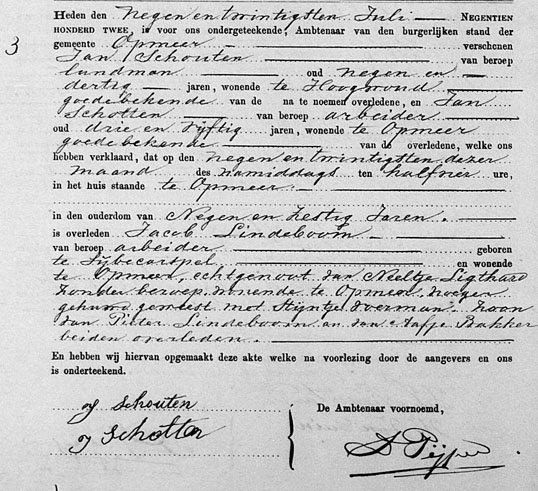 Heden den negen en twintigsten Juli NEGENTIEN
HONDERD TWEE, is voor ons ondergeteekende, Ambtenaar van den burgerlijken stand der
3
gemeente Opmeer verschenen
Jan Schouten van beroep
landman oud negen en
dertig jaren, wonende te Hoogwoud
goede bekende van de na te noemen overledene, en Jan
Schotten van beroep arbeider
oud drie en vijftig jaren, wonende te Opmeer
goede bekende van de overledene, welke ons
hebben verklaard, dat op den negen en twintigsten dezer
maand des namiddags ten half vier ure,
in het huis staande te Opmeer
in den ouderdom van Negen en zestig Jaren.
is overleden Jacob Lindeboom
van beroep arbeider geboren
te Sijbecarspel en wonende
te Opmeer, echtgenoot van Neeltje Ligthard
zonder beroep wonende te Opmeer, vroeger
gehuwd geweest met Stijntje Voerman. Zoon
van Pieter Lindeboom en van Aafje Bakker
beiden overleden.
En hebben wij hiervan opgemaakt deze akte welke na voorlezing door de aangevers en ons
is onderteekend.
Schouten
J Schotten
De Ambtenaar voornoemd,
Pijper